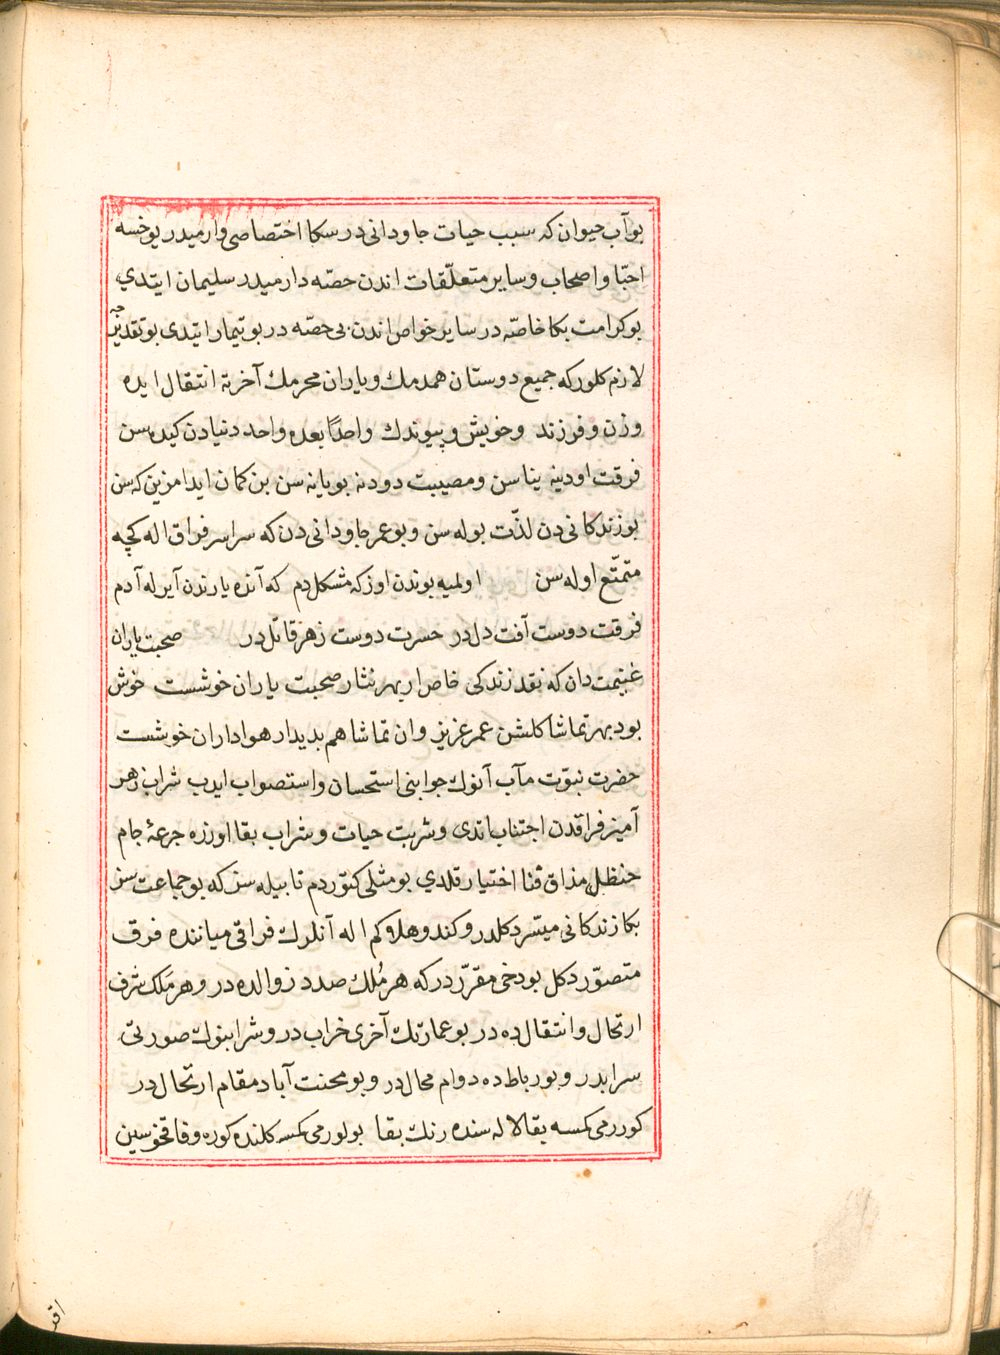 بو آب حیوان که سبب حیات جاودانی در سکا اختصاصی وارمیدر یوخسه
احبّا و اصحاب و سایر متعلّقات اندن حصّه دارمیدر سلیمان ایتدی
بو کرامت بکا خاصّه در سایر خواص اندن بی حصّه در بوتیمار ایتدی بو تقدیرجه
لازم کلور که جمیع دوستان همدمك و یاران محرمك آخرته انتقال ایده
و زن و فرزند و خویش و پیوندك واحدًا بعد واحد دنیادن کیده سن
فرقت اودینه یناسن و مصیبت دودنه بویانه سن بن کمان ایدامزین که سن
بو زندکانی دن لذّت بوله سن و بو عمر جاودانی دن که سراسر فراق اله کچه
متمتّع اوله سن اولمیه بوندن اوزکه مشکل دم که آنده یارندن آیرله آدم
فرقت دوست آفت دل در حسرت دوست زهر قاتل در صحبت یاران
غنیمت دان که نقد زندکی خاص از بهر نثار صحبت یاران خوشست خوش
بود بهر تماشا کلشن عمر عزیز وان تماشا هم بدیدار هواداران خوشست
حضرت نبوّت مآب آنوك جوابنی استحسان و استصواب ایدب شراب زهر
آمیز فراقدن اجتناب اتدی و شربت حیات و شراب بقا اوزره جرعهٔ جام
حنظل مذاق فنا اختیار قلدی بو مثلی کتوردم تا بیله سز که بو جماعت سز
بکا زندکانی میسّر دکلدر و کندو هلاکم اله آنلرك فراقی میاننده فرق
متصوّر دکل بو دخی مقرّر در که هر مُلك صدد زوالده در و هر مَلك شرف
ارتحال و انتقال ده در بو عمارتك آخری خراب در و شرابنوك صورتی
سرابدر و بو رباط ده دوام محال در و بو محنت آباد مقام ارتحال در
کوررمی کمسه بقا لاله سنده رنك بقا بولورمی کمسه کلنده کوره وفا قخوسین